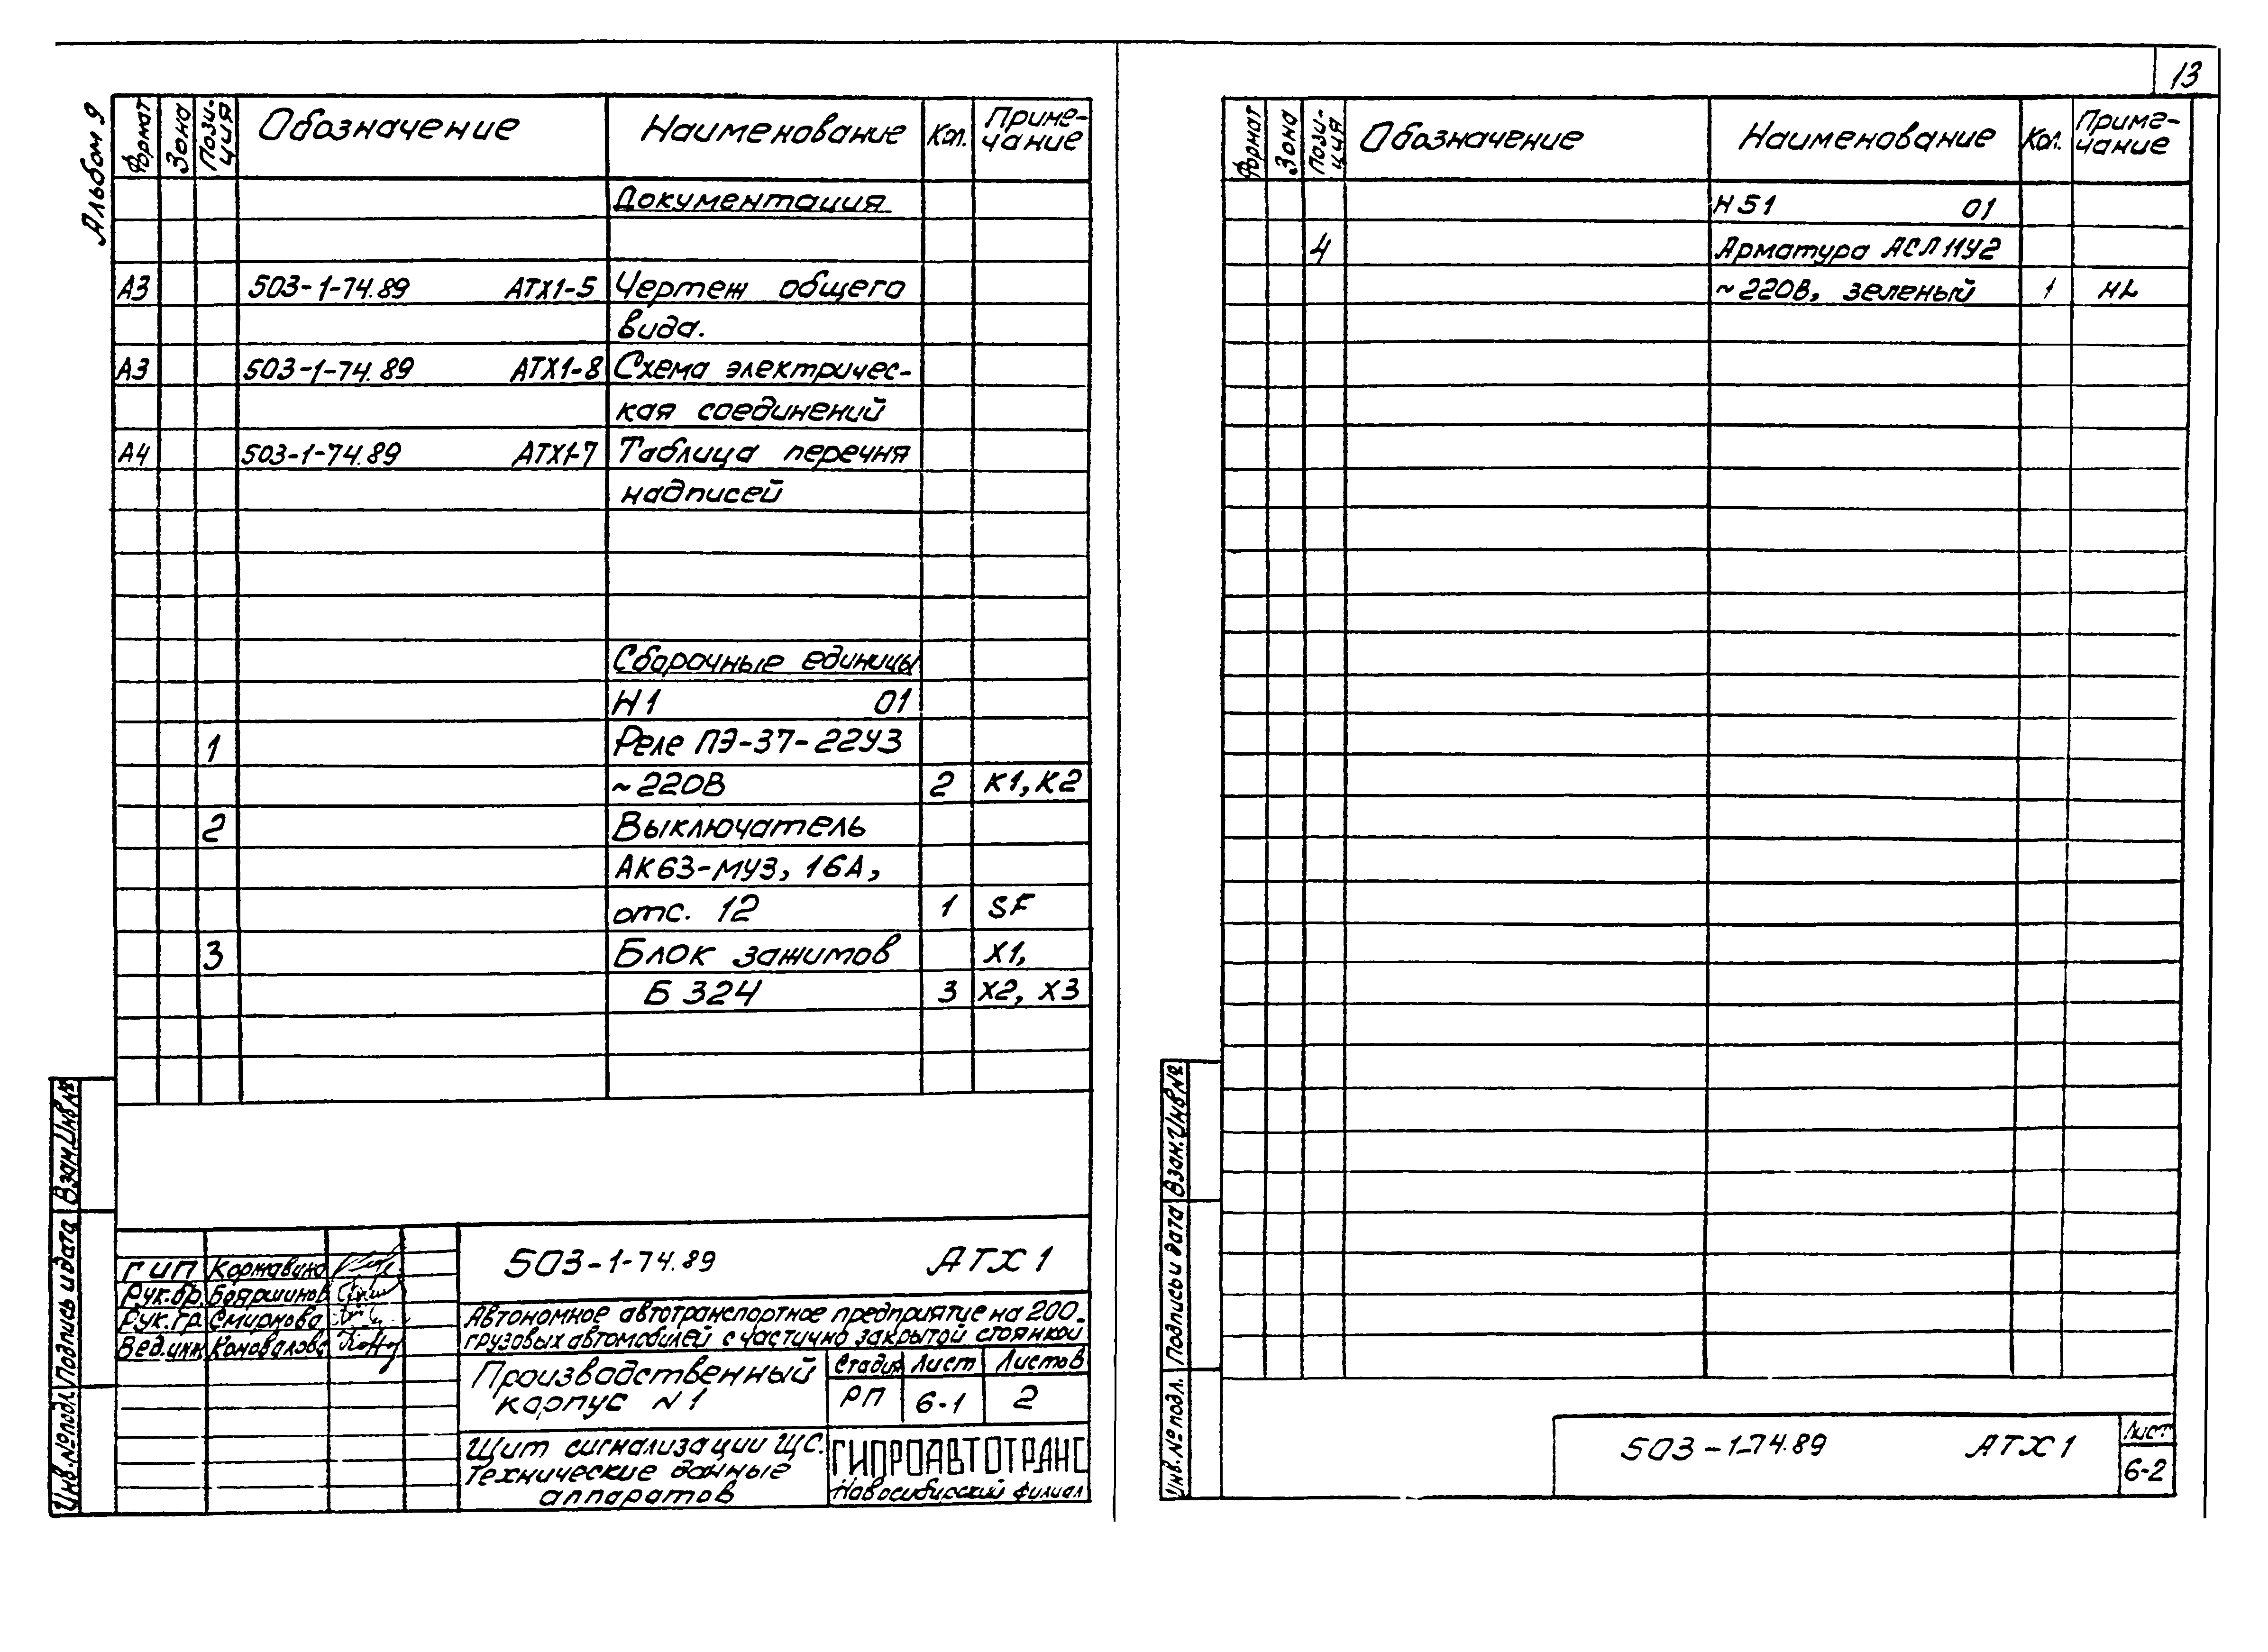 13
Альбом 9
Формат Зона Пози-ция Обозначение Наименование Кол. Приме-чание
Документация
А3 503-1-74.89 АТХ1-5 Чертеж общего
вида.
А3 503-1-74.89 АТХ1-8 Схема электричес-
кая соединений
А4 503-1-74.89 АТХ1-7 Таблица перечня
надписей
Сборочные единицы
Н1 01
1 Реле ПЭ-37-22У3
~220В 2 К1, К2
2 Выключатель
АК63-МУ3, 16А,
отс. 12 1 SF
3 Блок зажимов Х1,
Б324 3 Х2, Х3
Взам.Инв№
Подпись и дата
Инв.№подл.
503-1-74.89 АТХ1
ГИП
Рук.бр. Бояршинов
Рук.гр. Смирнова
Вед.инж Коновалова
Автономное автотранспортное предприятие на 200
грузовых автомобилей с частично закрытой стоянкой
Производственный
корпус N1
Стадия Лист Листов
РП 6-1 2
Щит сигнализации ЩС.
Технические данные
аппаратов
ГИПРОАВТОТРАНС
Новосибирский филиал
Формат Зона Пози-ция Обозначение Наименование Кол. Приме-чание
Н51 01
4 Арматура АСЛ11У2
~220В, зеленый 1 HL
Взам.Инв№
Подпись и дата
Инв.№подл.
503-1-74.89 АТХ1
Лист
6-2